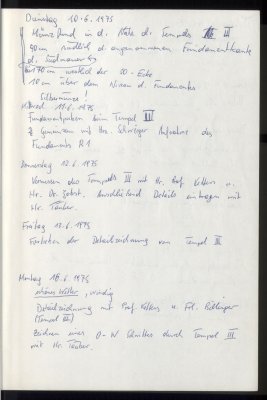 Dienstag 10.6.1975
Münzfund in d. Nähe d. Tempels III
90cm südlich d. angenommenen Fundamentkante
d. Südmauer
170cm westlich der SO-Ecke
10cm über dem Niveau d. Fundamentes
Silbermünze!
11.6.1975
Fundamentputzen beim Tempel III
Gemeinsam mit Hr. Aufnahme des
Fundaments R1
Donnerstag 12.6.1975
Vermessen des Tempels III mit Hr. Prof. Kettner u.
Hr. Dr. Jobst. Anschließend Details eintragen mit
Hr. Tauber.
Freitag 13.6.1975
Farbeten der Detailzeichnung vom Tempel III
Montag 16.6.1975
schönes Wetter, windig
Detailzeichnung mit Prof. Kettner u. Frl.
(Tempel III)
Zeichnen eines O-W Schnittes durch Tempel III
mit Hr. Tauber.